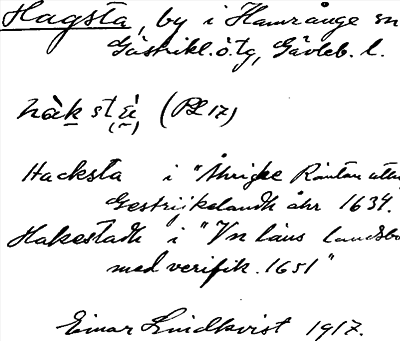 Hagsta, by i Hamrånge sn
Gästrikl. ö. tg, Gävleb. l.
(PL 17)
Hacksta i "Åhrige Räntan
Gestrijkelandh åhr 1634.
Hakestadh i "Vn läns landsbo
med verifik. 1651"
Einar Lindkvist 1917.